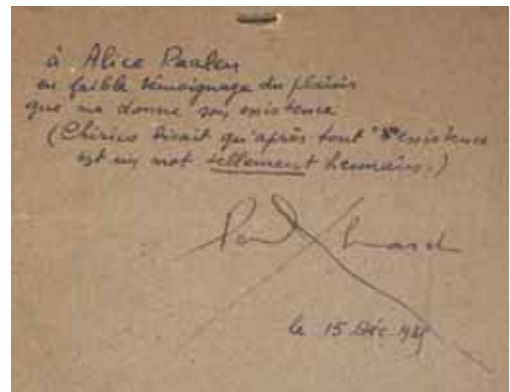 à Alice Paalen
en faible témoignage du plaisir
que me donne son existence
(Chirico disait qu'après tout "existence
est un mot tellement humain.)
Paul Eluard
le 15 Déc.